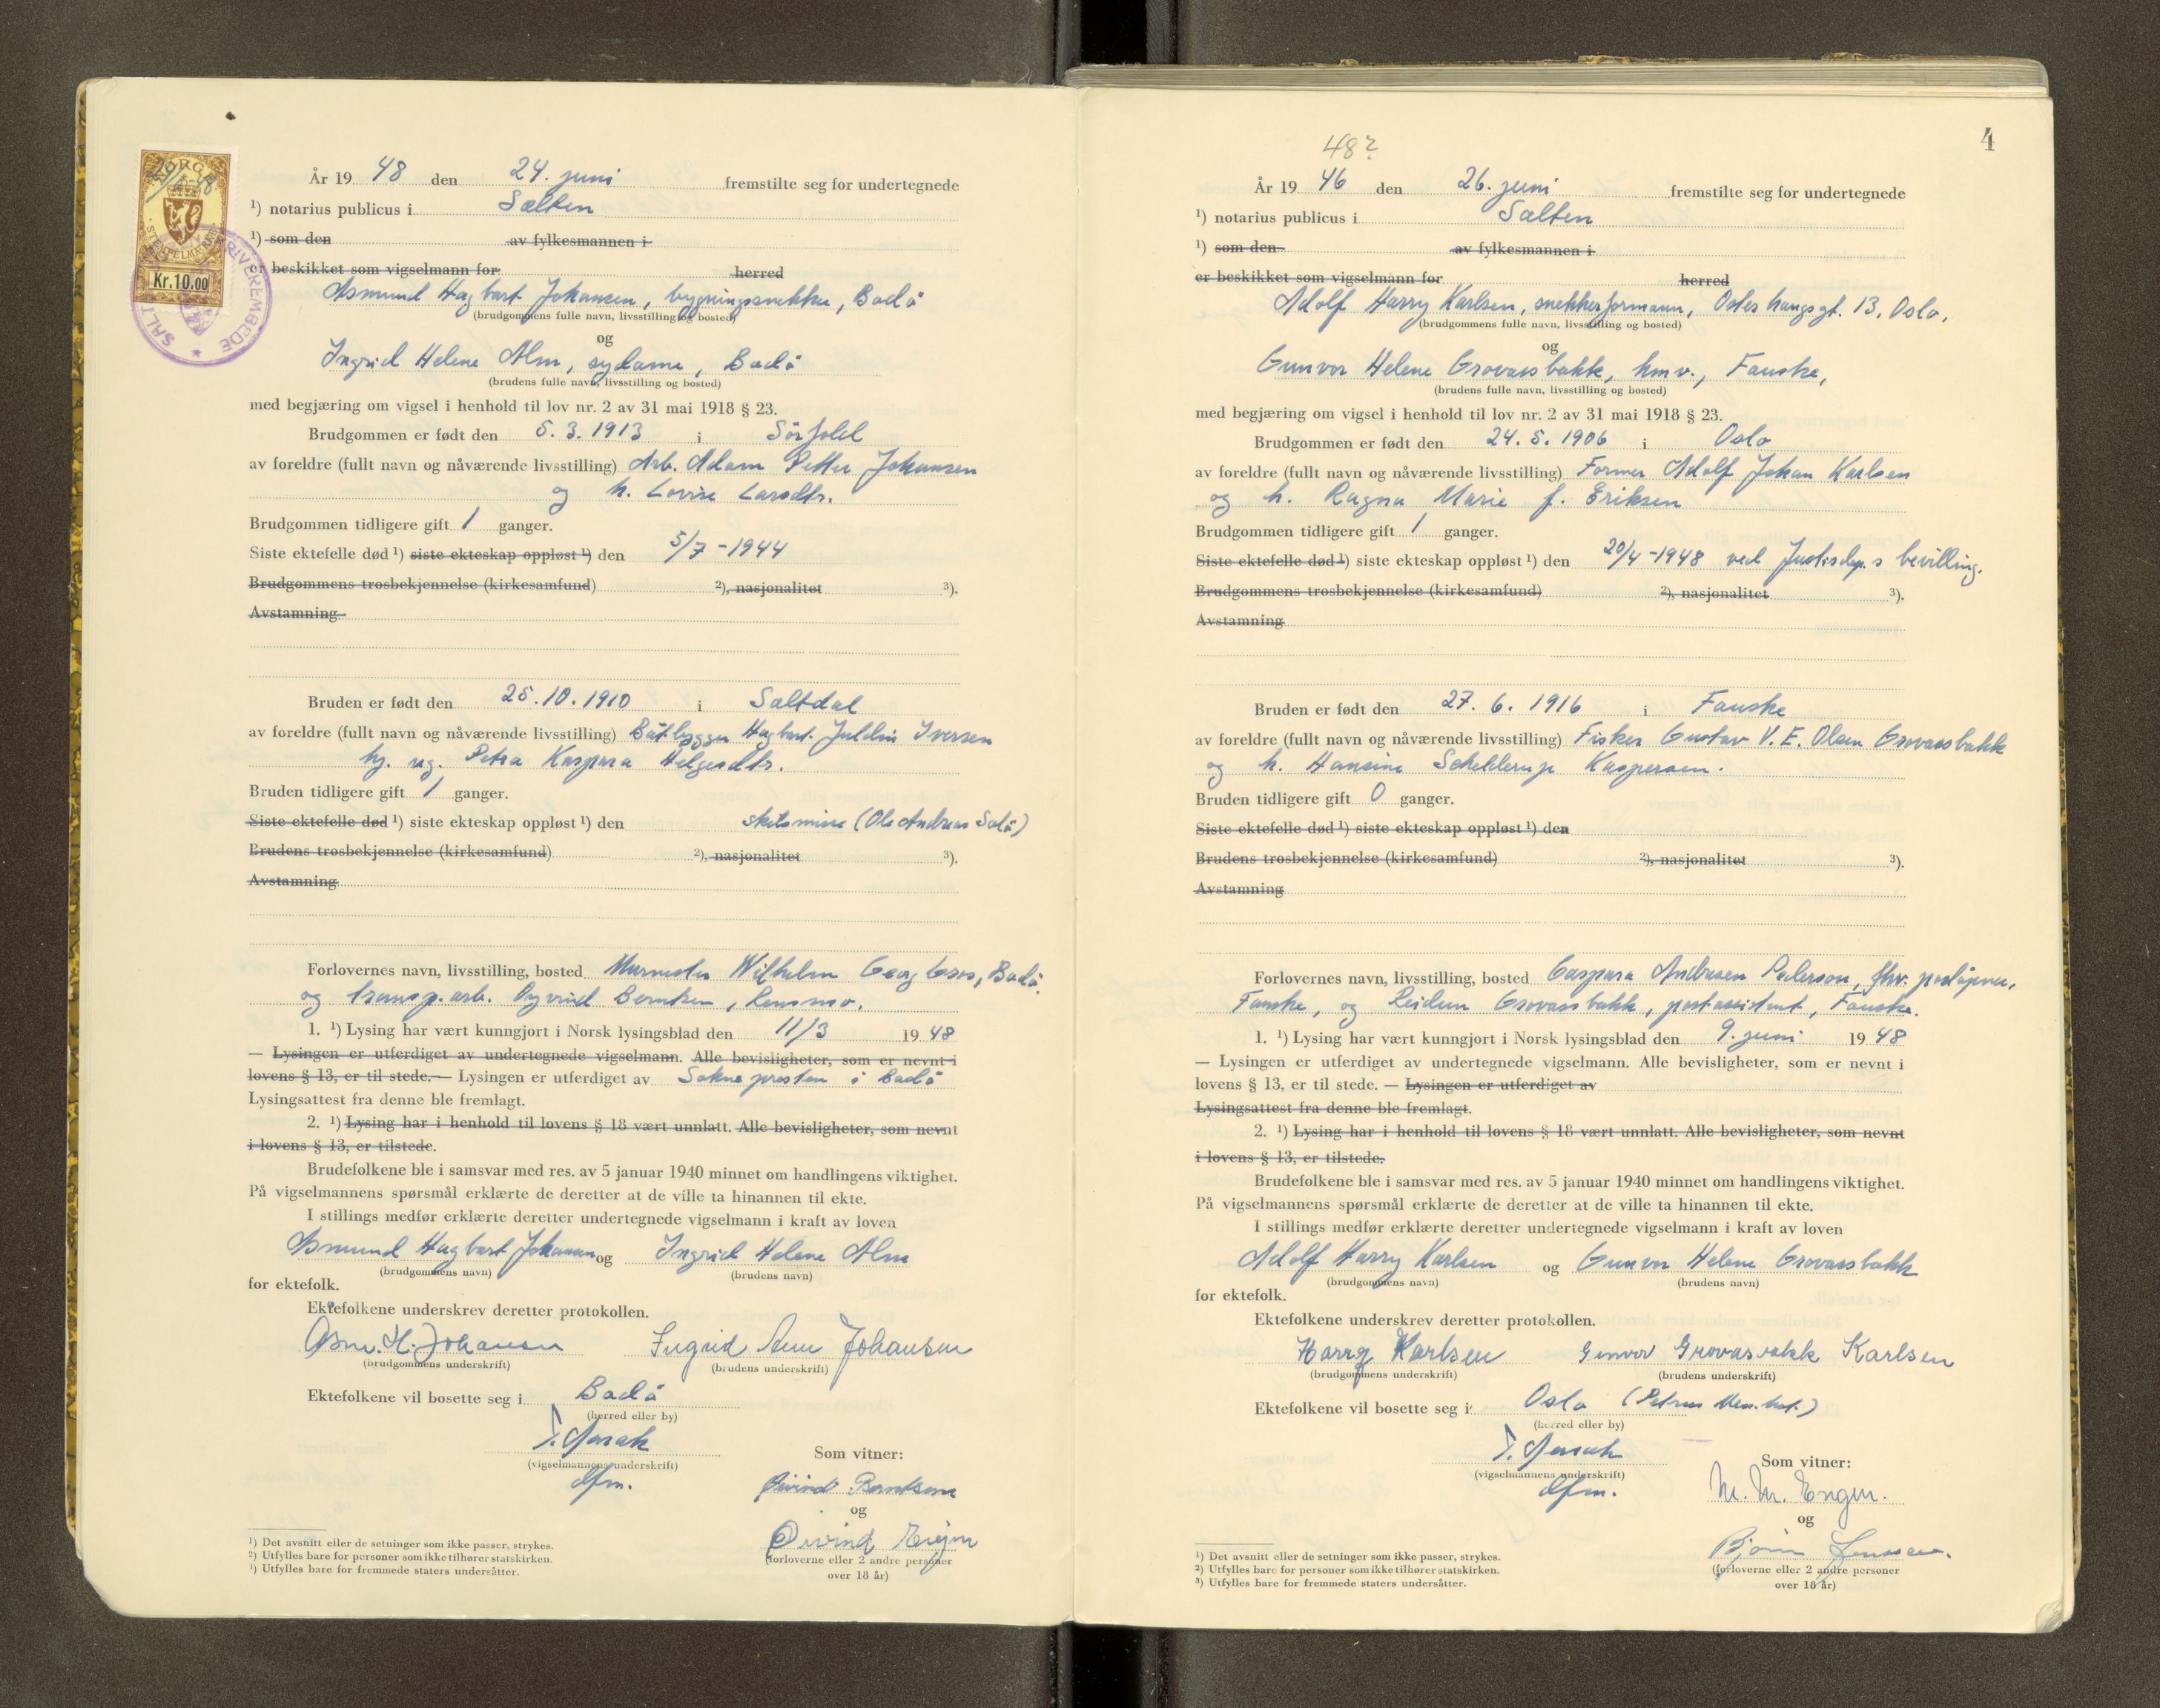 NORGE
29/6-48
STEMPELMERKE
Kr.10.00
SALT RIVEREMBEDE
År 19 48 den 24. juni fremstilte seg for undertegnede
1) notarius publicus i Salten
1) som den av fylkesmannen i
er beskikket som vigselmann for herred
Asmund Hagbart Johansen, bygningssnekker, Bodö
(brudgommens fulle navn, livsstilling og bosted)
og
Ingrid Helene Alm, sydame, Bodö
(brudens fulle navn, livsstilling og bosted)
med begjæring om vigsel i henhold til lov nr. 2 av 31 mai 1918 § 23.
Brudgommen er født den 5. 3. 1913 i Sörfold
av foreldre (fullt navn og nåværende livsstilling) Arb. Adam Petter Johansen
og h. Lovise Larsdtr.
Brudgommen tidligere gift 1 ganger.
Siste ektefelle død 1) siste ekteskap oppløst 1) den 5/7 - 1944
Brudgommens trosbekjennelse (kirkesamfund) 2), nasjonalitet 3).
Avstamning
Bruden er født den 25. 10. 1910 i Saltdal
av foreldre (fullt navn og nåværende livsstilling) Båtbygger Hagbart Juldin Iversen
hj. ug. Petra Kaspara Helgesdtr.
Bruden tidligere gift 1 ganger.
Siste ektefelle død 1) siste ekteskap oppløst 1) den skilsmisse (Ole Andreas Solö)
Brudens trosbekjennelse (kirkesamfund) 2), nasjonalitet 3).
Avstamning
Forlovernes navn, livsstilling, bosted Murmester Wilhelm Georg Gros, Bodö.
og transp.arb. Öyvind Berntsen, Rønsmo.
1. 1) Lysing har vært kunngjort i Norsk lysingsblad den 11/3 19 48
— Lysingen er utferdiget av undertegnede vigselmann. Alle bevisligheter, som er nevnt i
lovens § 13, er til stede. — Lysingen er utferdiget av Soknepresten i Bodö
Lysingsattest fra denne ble fremlagt.
2. 1) Lysing har i henhold til lovens § 18 vært unnlatt. Alle bevisligheter, som nevnt
i lovens § 13, er tilstede.
Brudefolkene ble i samsvar med res. av 5 januar 1940 minnet om handlingens viktighet.
På vigselmannens spørsmål erklærte de deretter at de ville ta hinannen til ekte.
I stillings medfør erklærte deretter undertegnede vigselmann i kraft av loven
Asmund Hagbart Johansen og Ingrid Helene Alm
(brudgommens navn) (brudens navn)
for ektefolk.
Ektefolkene underskrev deretter protokollen.
Asm. H. Johansen Ingrid Alm Johansen
(brudgommens underskrift) (brudens underskrift)
Ektefolkene vil bosette seg i Bodö
(herred eller by)
(vigselmannens underskrift)
Som vitner:
dfm.
Öivind Berntsen
og
Öivind
(forloverne eller 2 andre personer
over 18 år)
1) Det avsnitt eller de setninger som ikke passer, strykes.
2) Utfylles bare for personer som ikke tilhører statskirken.
3) Utfylles bare for fremmede staters undersåtter.
4
48?
År 19 46 den 26. juni fremstilte seg for undertegnede
1) notarius publicus i Salten
1) som den av fylkesmannen i
er beskikket som vigselmann for herred
Adolf Harry Karlsen, snekkerformann, Österhaugsgt. 13, Oslo.
(brudgommens fulle navn, livsstilling og bosted)
og
Gunvor Helene Grovassbakk, hmv., Fauske,
(brudens fulle navn, livsstilling og bosted)
med begjæring om vigsel i henhold til lov nr. 2 av 31 mai 1918 § 23.
Brudgommen er født den 24. 5. 1906 i Oslo
av foreldre (fullt navn og nåværende livsstilling) Former Adolf Johan Karlsen
og h. Ragna Marie f. Eriksen
Brudgommen tidligere gift 1 ganger.
Siste ektefelle død 1) siste ekteskap oppløst 1) den 20/4 -1948 ved Justisdep.s bevilling.
Brudgommens trosbekjennelse (kirkesamfund) 2), nasjonalitet 3).
Avstamning
Bruden er født den 27. 6. 1916 i Fauske
av foreldre (fullt navn og nåværende livsstilling) Fisker Gustav V. E. Olsen Grovassbakk
og h. Hansine Schelderup Kaspersen.
Bruden tidligere gift 0 ganger.
Siste ektefelle død 1) siste ekteskap oppløst 1) den
Brudens trosbekjennelse (kirkesamfund) 2), nasjonalitet 3).
Avstamning
Forlovernes navn, livsstilling, bosted Caspara Andresen Pederson, fhv. poståpner,
Fauske, og Reidun Grovassbakk, postassistent, Fauske.
1. 1) Lysing har vært kunngjort i Norsk lysingsblad den 9. juni 19 48
— Lysingen er utferdiget av undertegnede vigselmann. Alle bevisligheter, som er nevnt i
lovens § 13, er til stede. — Lysingen er utferdiget av
Lysingsattest fra denne ble fremlagt.
2. 1) Lysing har i henhold til lovens § 18 vært unnlatt. Alle bevisligheter, som nevnt
i lovens § 13, er tilstede.
Brudefolkene ble i samsvar med res. av 5 januar 1940 minnet om handlingens viktighet.
På vigselmannens spørsmål erklærte de deretter at de ville ta hinannen til ekte.
I stillings medfør erklærte deretter undertegnede vigselmann i kraft av loven
Adolf Harry Karlsen og Gunvor Helene Grovassbakk
(brudgommens navn) (brudens navn)
for ektefolk.
Ektefolkene underskrev deretter protokollen.
Harry Karlsen Gunvor Grovasbakk Karlsen
(brudgommens underskrift) (brudens underskrift)
Ektefolkene vil bosette seg i Oslo (Petrus Men. hst.)
(herred eller by)
(vigselmannens underskrift)
Som vitner:
dfm.
M. M. Engen.
og
Bjørn
(forloverne eller 2 andre personer
over 18 år)
1) Det avsnitt eller de setninger som ikke passer, strykes.
2) Utfylles bare for personer som ikke tilhører statskirken.
3) Utfylles bare for fremmede staters undersåtter.